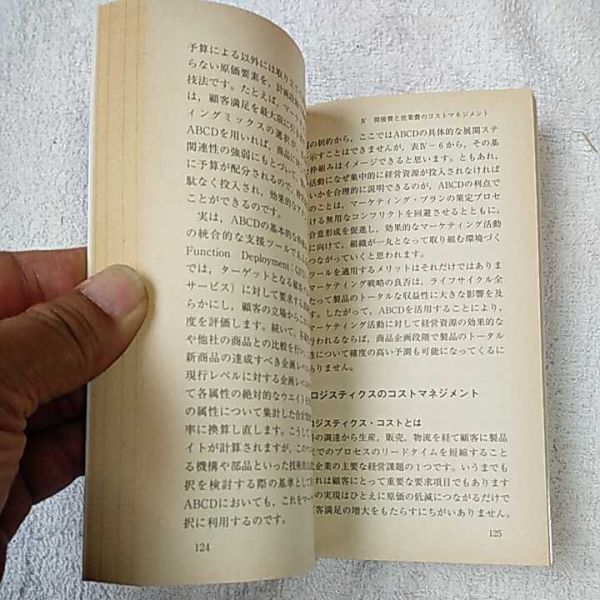 予算による以外には取り立て
らない原価要素を、計画
技法です。たとえば、マー
は、顧客満足を最大限に引き
ィングミックスの選択が
ABCDを用いれば、商品に対
関連性の強弱にもとづいて
に予算が配分されるので、経
駄なく投入され、効果的なマ
ことができるのです。
実は、ABCDの基本的な
の統合的な支援ツールであ
Function Deployment：QF
では、ターゲットとなる顧客
サービス）に対して要求する
らかにし、顧客の立場からこ
度を評価します。続いて、
や他社の商品との比較を行い
新商品の達成すべき企画レベ
現行レベルに対する企画レベ
て各属性の絶対的なウエイト
の属性について集計した合計
率に換算し直します。こうし
イトが計算されますが、この
る機構や部品といった技術
択を検討する際の基準として
ABCDにおいても、これをマー
択に利用するのです。
124
Ⅳ 間接費と営業費のコストマネジメント
の制約から、ここではABCDの具体的な展開ステ
示すことはできませんが、表Ⅳ－6から、その基
枠組みはイメージできると思います。ともあれ、
活動になぜ集中的に経営資源が投入されなければ
いかを合理的に説明できるのが、ABCDの利点で
のことは、マーケティング・プランの策定プロセ
ける無用なコンフリクトを回避させるとともに、
合意形成を促進し、効果的なマーケティング活動
に向けて、組織が一丸となって取り組む環境づく
つながっていくと思われます。
ツールを適用するメリットはそれだけではありま
マーケティング戦略の良否は、ライフサイクル全
なって製品のトータルな収益性に大きな影響を及
す。したがって、ABCDを活用することにより、
マーケティング活動に対して経営資源の効果的な
行われるならば、商品企画段階で製品のトータル
性について確度の高い予測も可能になってくるに
ありません。
ロジスティクスのコストマネジメント
ロジスティクス・コストとは
の調達から生産、販売、物流を経て顧客に製品
までのプロセスのリードタイムを短縮すること
企業の主要な経営課題の1つです。いうまでも
れは顧客にとって重要な要求項目でもあります
の実現はひとえに原価の低減につながるだけで
客満足の増大をもたらすにちがいありません。
125